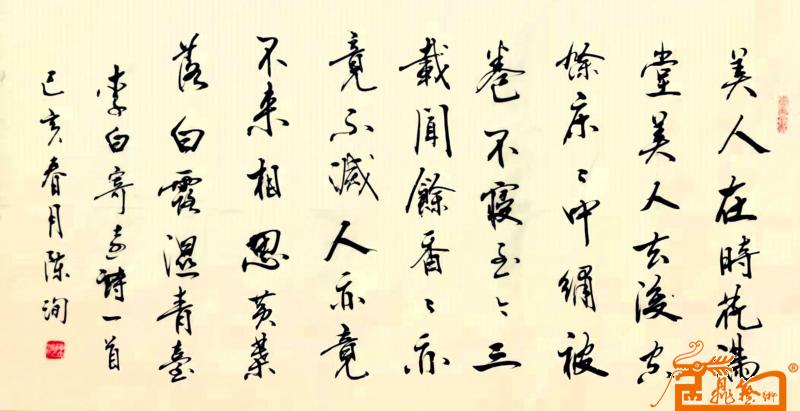 美人在時花滿
堂美人去後空
餘床〻中繡被
卷不寢至今三
載聞餘香〻亦
竟不滅人亦竟
不來相思黃葉
落白露濕青臺
李白寄遠詩一首
己亥春月陳洵